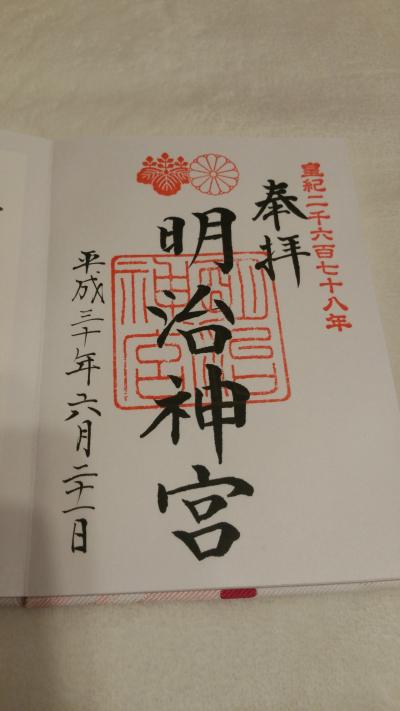 皇紀二千六百七十八年
奉拝
明治神宮
明治神宮
平成三十年六月二十一日